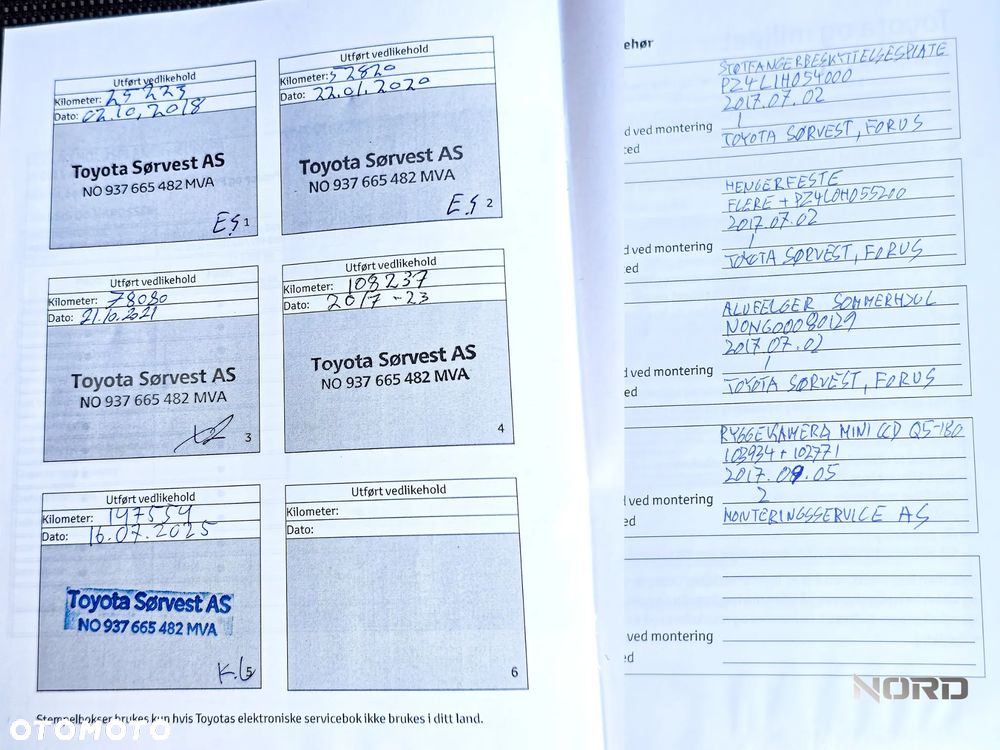 Utført vedlikehold
Kilometer: 25 223
Dato: 02.10.2018
Toyota Sørvest AS
NO 937 665 482 MVA
1
Utført vedlikehold
Kilometer: 52820
Dato: 22.01.2020
Toyota Sørvest AS
NO 937 665 482 MVA
2
Utført vedlikehold
Kilometer: 78080
Dato: 21.10.2021
Toyota Sørvest AS
NO 937 665 482 MVA
3
Utført vedlikehold
Kilometer: 108237
Dato: 2017 -23
Toyota Sørvest AS
NO 937 665 482 MVA
4
Utført vedlikehold
Kilometer: 147554
Dato: 16.07.2025
Toyota Sørvest AS
NO 937 665 482 MVA
5
Utført vedlikehold
Kilometer:
Dato:
6
Stempelbokser brukes kun hvis Toyotas elektroniske servicebok ikke brukes i ditt land.
ehør
STØTFANGERBESKYTTELSESPLATE
PZ4L1H054000
2017.07.02
d ved montering 1
ted TOYOTA SØRVEST, FORUS
HENGERFESTE
FLERE + PZ4L0H055200
2017.07.02
d ved montering 1
ted TOYOTA SØRVEST, FORUS
ALUFELGER SOMMERHJUL
NONG00080129
2017.07.02
d ved montering 1
ed TOYOTA SØRVEST, FORUS
RYGGEKAMERA MINI CCD Q5-180
103934 + 102771
2017.09.05
d ved montering 2
ed MONTERINGSSERVICE AS
ved montering
ed
NORD
OTOMOTO